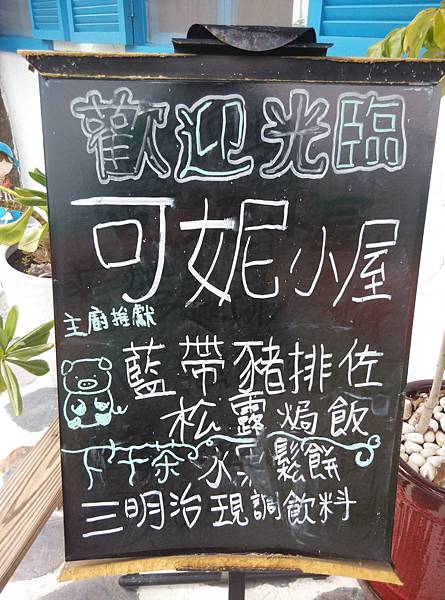 歡迎光臨
可妮小屋
主廚推獻
藍帶豬排佐
松露焗飯
下午茶 冰 鬆餅
三明治現調飲料